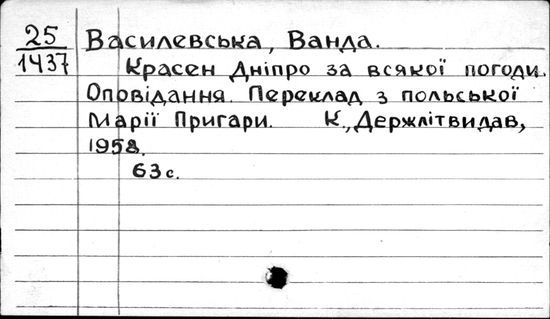 25 Василевська, Ванда.
1437 Красен Дніпро за всякої погоди.
Оповідання. Переклад з польської
Марії Пригари. К., Держлітвидав,
1958.
63 с.